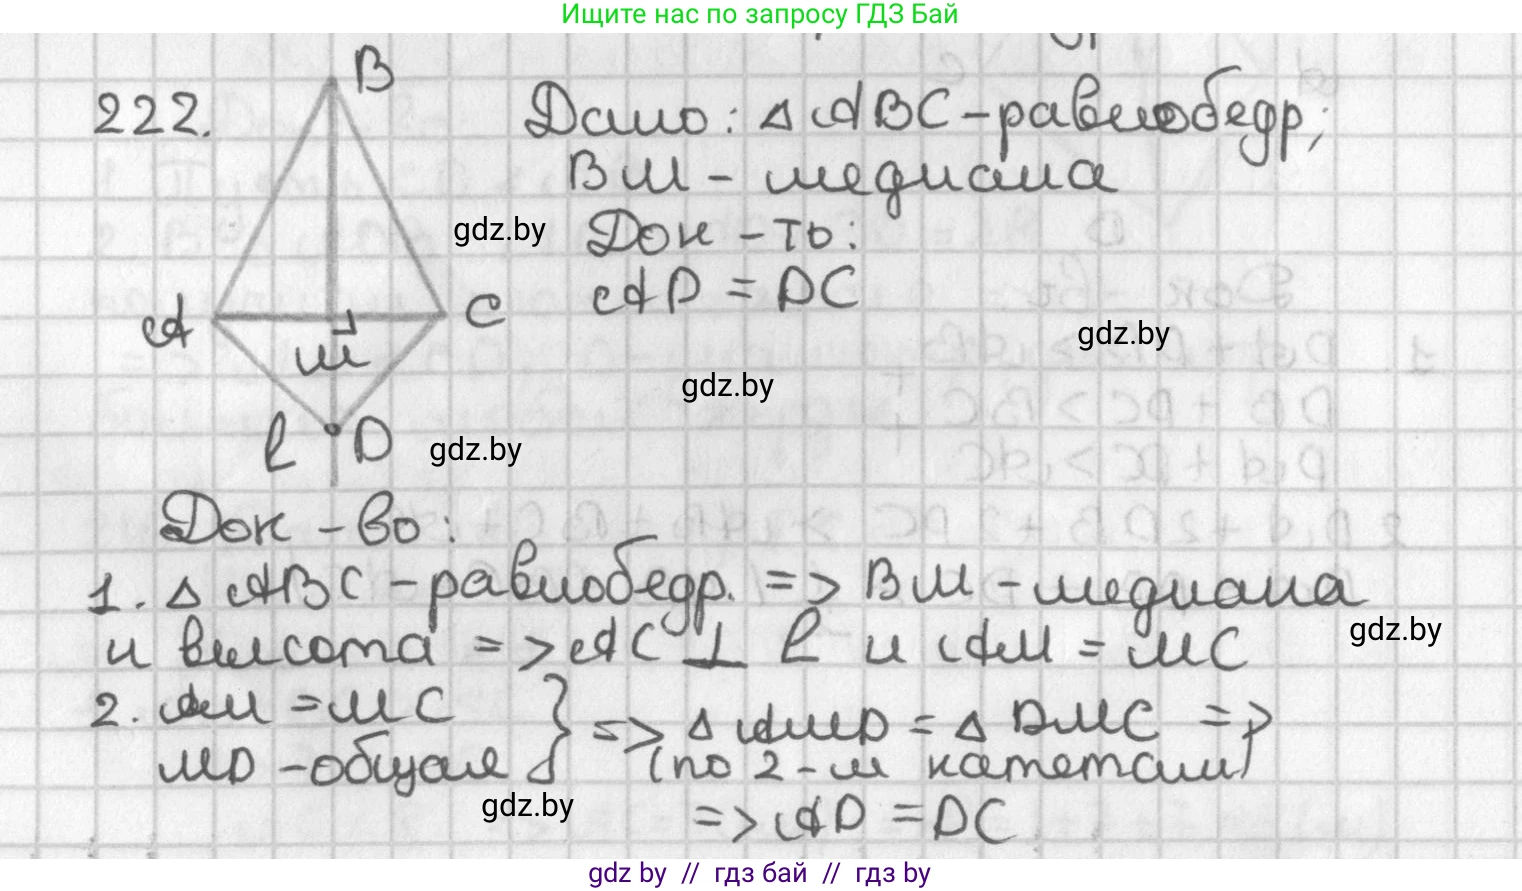 Ищите нас по запросу ГДЗ Бай
222.
B
A
C
M
l
D
Дано: △ ABC - равнобедр;
BM - медиана
gdz.by
Док - ть:
AD = DC
gdz.by
gdz.by
gdz.by
Док - во:
1. △ ABC - равнобедр. => BM - медиана
и высота => AC ⊥ l и AM = MC
gdz.by
2. AM = MC
MD - общая } => △ AMD = △ DMC =>
(по 2-м катетам)
gdz.by
=> AD = DC
gdz by // гдз бай // гдз by